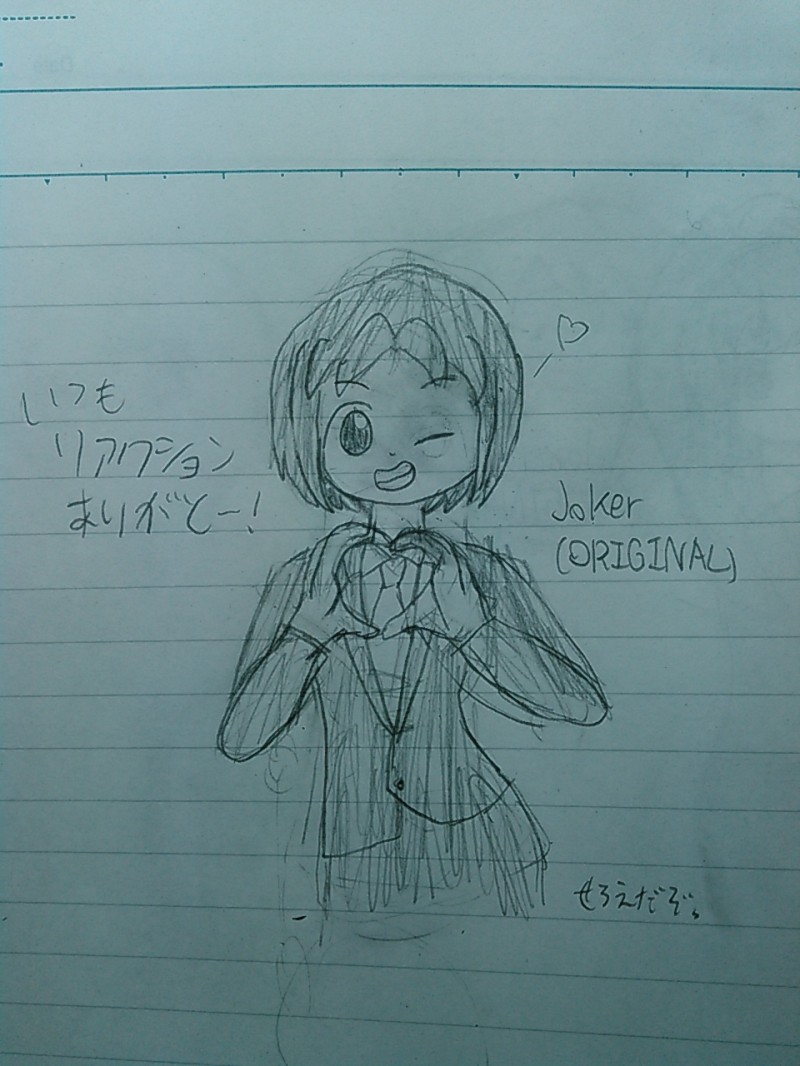 いつも
リアクション
ありがとー!
Joker
(ORIGINAL)
せろえだぞ。